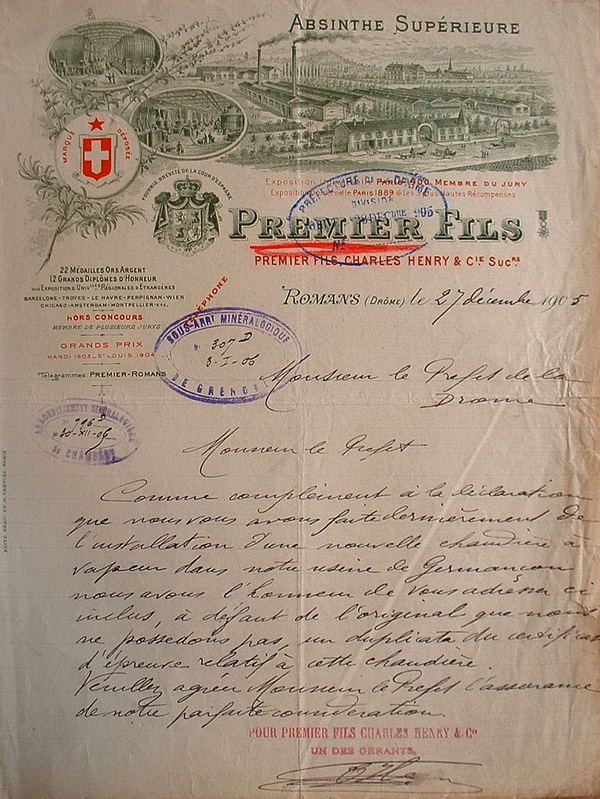 ABSINTHE SUPÉRIEURE
MARQUE DÉPOSÉE
FOURNIS. BREVETÉ DE LA COUR D'ESPAGNE
Exposition Universelle PARIS 1900 MEMBRE DU JURY
Exposition Universelle PARIS 1889 Les Plus Hautes Récompenses
PRÉFECTURE DE LA DRÔME
DIVISION
PREMIER FILS
PREMIER FILS, CHARLES HENRY & CIE SUCRS
22 MÉDAILLES OR & ARGENT
12 GRANDS DIPLÔMES D'HONNEUR
AUX EXPOSITIONS UNIVLLES RÉGIONALES & ETRANGÈRES
BARCELONE-TROYES-LE HAVRE-PERPIGNAN-WIEN
CHICAGO-AMSTERDAM-MONTPELLIER-ETC.
HORS CONCOURS
MEMBRE DE PLUSIEURS JURYS
GRANDS PRIX
HANOI 1903-ST LOUIS 1904
Télégrammes: PREMIER-ROMANS
TÉLÉPHONE
ROMANS (DRÔME) le 27 décembre 1905
SOUS-ARRT MINÉRALOGIQUE
N° 307 D
3-I-06
DE GRENOBLE
Monsieur le Préfet de la
Drome
ARRONDISSEMENT MINÉRALOGIQUE
796 D
30-XII-05
DE CHAMBÉRY
Monsieur le Préfet
Comme complément à la déclaration
que nous vous avons faite dernièrement de
l'installation d'une nouvelle chaudière à
vapeur dans notre usine de Germancon
nous avons l'honneur de vous adresser ci
inclus, à défaut de l'original que nous
ne possedons pas, un duplicata du certificat
d'épreuve relatif à cette chaudière.
Veuillez agreer Monsieur le Préfet l'assurance
de notre parfaite consideration.
POUR PREMIER FILS CHARLES HENRY & CIE
UN DES GERANTS,